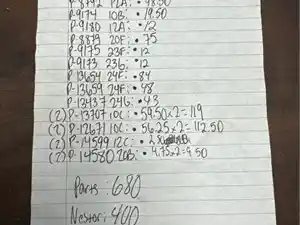 P-8792 12A: • 48.50
P-9174 10B: • 19.50
P-9180 12A: • 12
P-8879 20F: • 75
P-9175 23F: • 12
P-9173 23G: • 12
P-13654 24F: • 84
P-13659 24F: • 98
P-13437 24G: • 43
(2) P-13707 10C: • 59.50x2=119
(2) P-12671 10C: • 56.25x2=112.50
(2) P-14599 12C: • 28
(2) P-14580 20B: • 4.75x2=9.50
Parts: 680
Nestor: 400